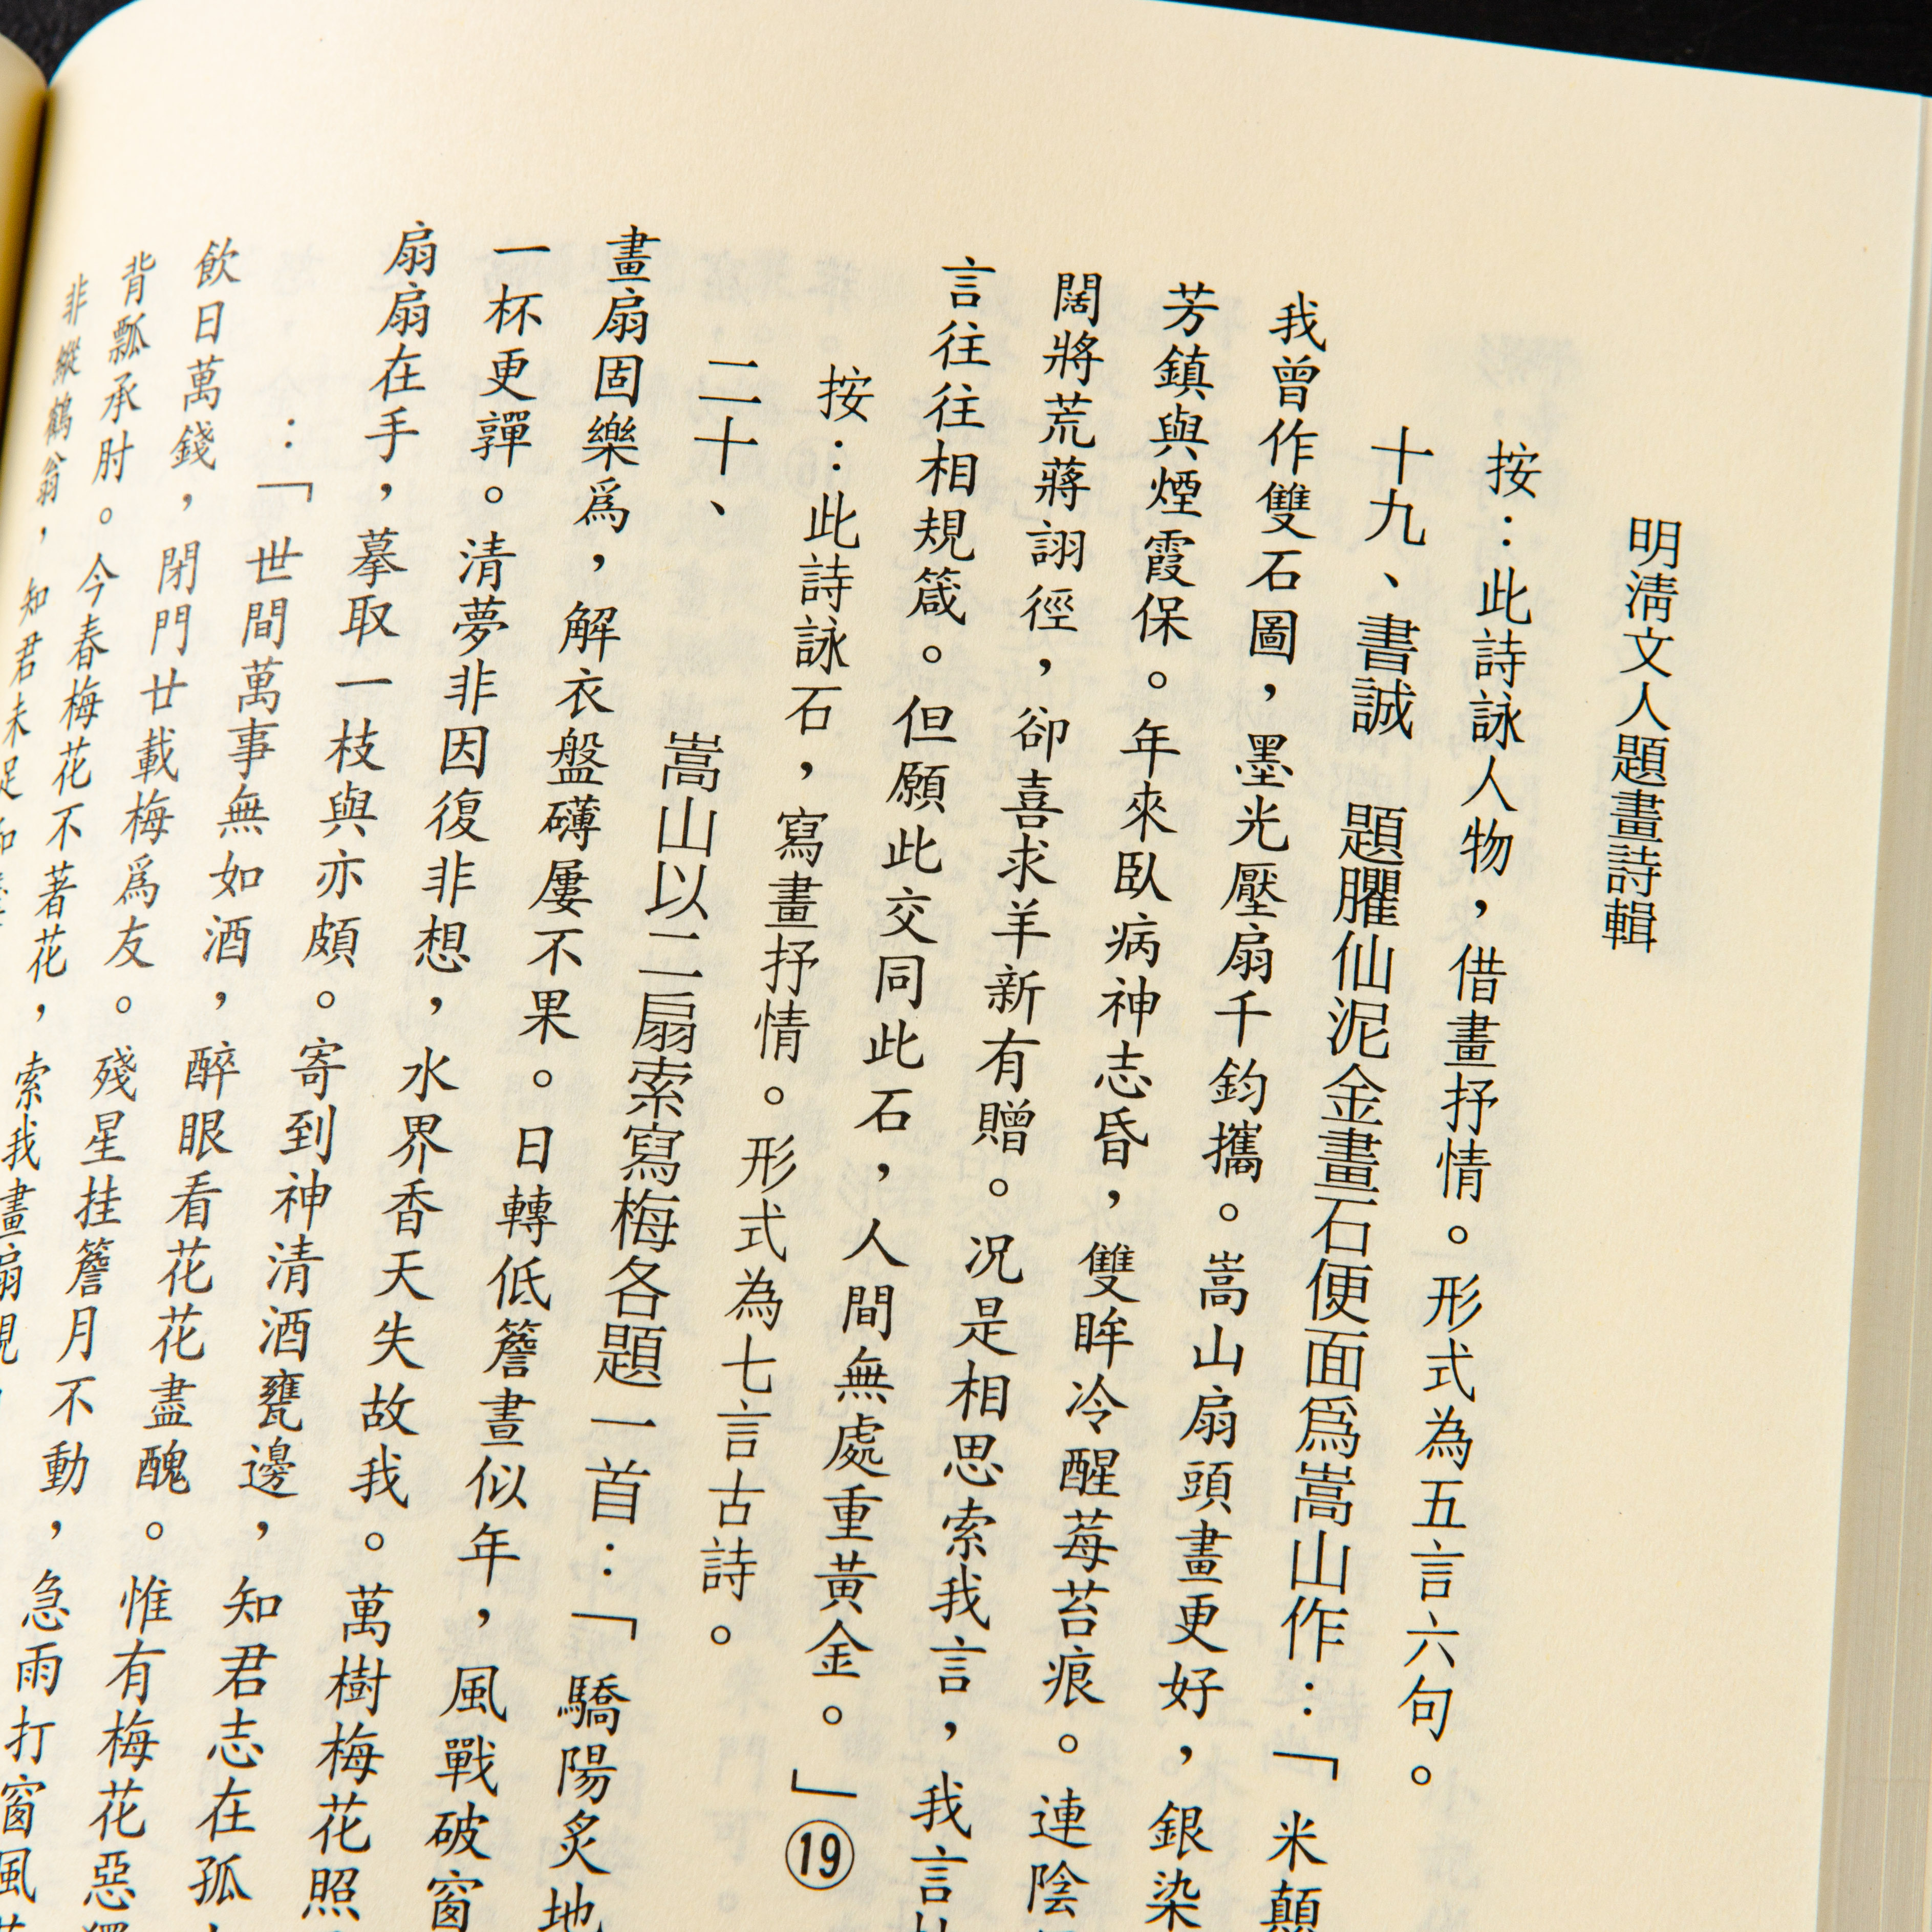 明清文人題畫詩輯
按：此詩詠人物，借畫抒情。形式為五言六句。
十九、書誠　題臞仙泥金畫石便面爲嵩山作：「米顛
我曾作雙石圖，墨光壓扇千鈞攜。嵩山扇頭畫更好，銀染
芳鎮與煙霞保。年來臥病神志昏，雙眸冷醒莓苔痕。連陰
闊將荒蔣詡徑，卻喜求羊新有贈。況是相思索我言，我言
言往往相規箴。但願此交同此石，人間無處重黃金。」⑲
按：此詩詠石，寫畫抒情。形式為七言古詩。
二十、　嵩山以二扇索寫梅各題一首：「驕陽炙地
畫扇固樂爲，解衣盤礴屢不果。日轉低簷晝似年，風戰破窗
一杯更嚲。清夢非因復非想，水界香天失故我。萬樹梅花照
扇扇在手，摹取一枝與亦頗。寄到神清酒甕邊，知君志在孤
：「世間萬事無如酒，醉眼看花花盡醜。惟有梅花惡
飲日萬錢，閉門廿載梅爲友。殘星挂簷月不動，急雨打窗風
背瓢承肘。今春梅花不著花，索我畫扇
非縱鶴翁，知君未足